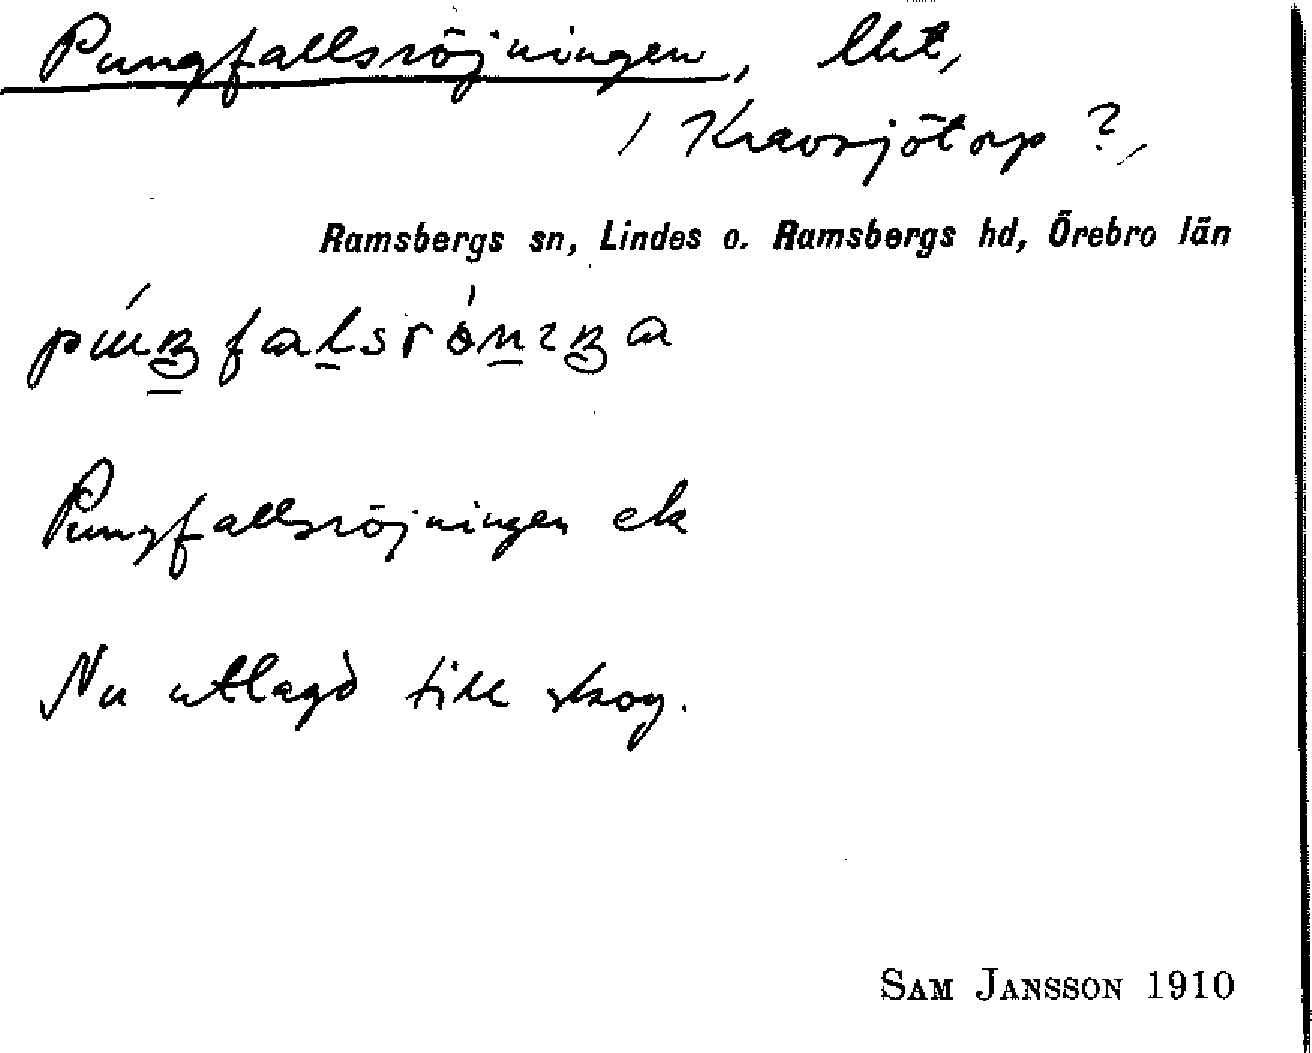 Pungfallsröjningen, lht,
/ Kravsjötorp ?,
Ramsbergs sn, Lindes o. Ramsbergs hd, Örebro län
Pungfallsröjningen ek
Nu utlagd till skog.
SAM JANSSON 1910